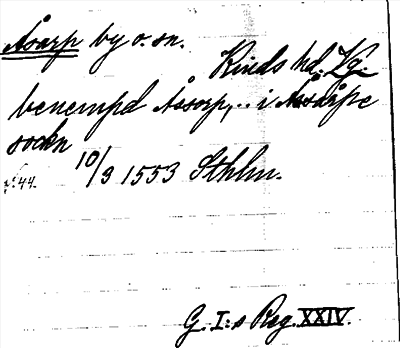 Åsarp by o. sn.
Kinds hd. Vg.
benempd Åssorp,.. i Åssårpe
sockn
10/3 1553 Sthlm.
s. 44.
G. I:s Reg. XXIV.